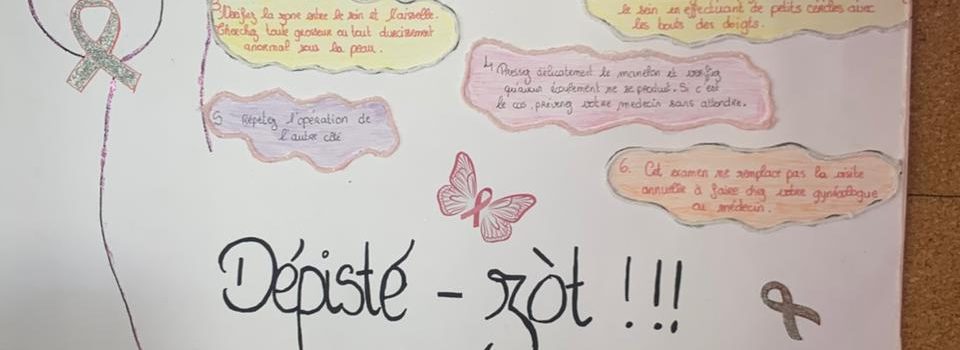 3. Vérifiez la zone entre le sein et l'aisselle.
Cherchez toute grosseur ou tout durcissement
anormal sous la peau.
le sein en effectuant de petits cercles avec
les bouts des doigts.
4 Pressez délicatement le mamelon et vérifiez
qu'aucun écoulement ne se produit. Si c'est
le cas, prévenez votre médecin sans attendre.
5 Répétez l'opération de
l'autre côté
6. Cet examen ne remplace pas la visite
annuelle à faire chez votre gynécologue
ou médecin.
Dépisté - zòt !!!